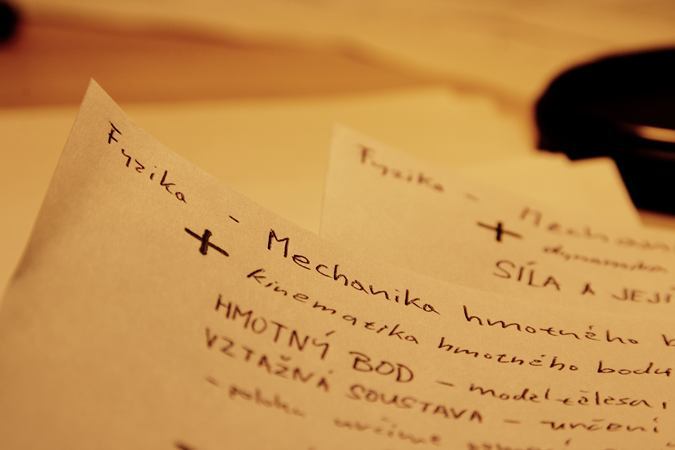 Fyzika - Mechanika hmotného
+ kinematika hmotného bodu
HMOTNÝ BOD - model tělesa,
VZTAŽNÁ SOUSTAVA - určení
- určíme
Fyzika - Mechanika
+ dynamika
SÍLA A JEJÍ